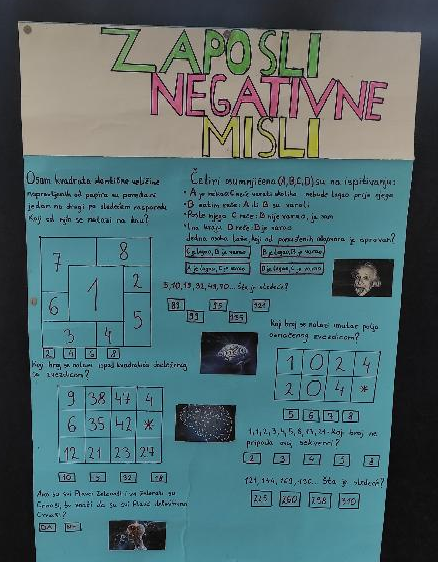 ZAPOSLI
NEGATIVNE
MISLI
Osam kvadrata identične veličine
napravljenih od papira su poređani
jedan na drugi po sledećem rasporedu
Koji od njih se nalazi na dnu?
7 8
1 2
6 5
3 4
2 4 6 8
Koji broj se nalazi ispod kvadratića obeleženog
sa zvezdicom?
9 38 47 4
6 35 42 *
12 21 23 27
10 32 18
Ako su svi Plavci Zelendići i svi Zelendići su
Crnaši, to znači da su svi Plavci definitivno
Crnaši?
DA NE
Četiri osumnjičena (A,B,C,D) su na ispitivanju:
• A je rekao: C neće varati ukoliko nebude lagao prije njega
• B zatim reče: A ili B su varali
• Posle njega C reče: B nije varao, ja sam
I na kraju D reče: B je varao
Jedna osoba laže, koji od ponuđenih odgovora je ispravan?
C je lagao, B je varao
B je lagao, B je varao
A je lagao, C je varao
D je lagao, C je varao
5, 10, 19, 32, 49, 70... Šta je sledeće?
Koji broj se nalazi unutar polja
označenog zvezdicom?
1 0 2 4
2 0 4 *
5 6 7 8
1, 1, 2, 3, 4, 5, 8, 13, 21 - Koji broj ne
pripada ovoj sekvenci?
2 3 4 5 8
121, 144, 169, 196... Šta je sledeće?
225 260 298 310